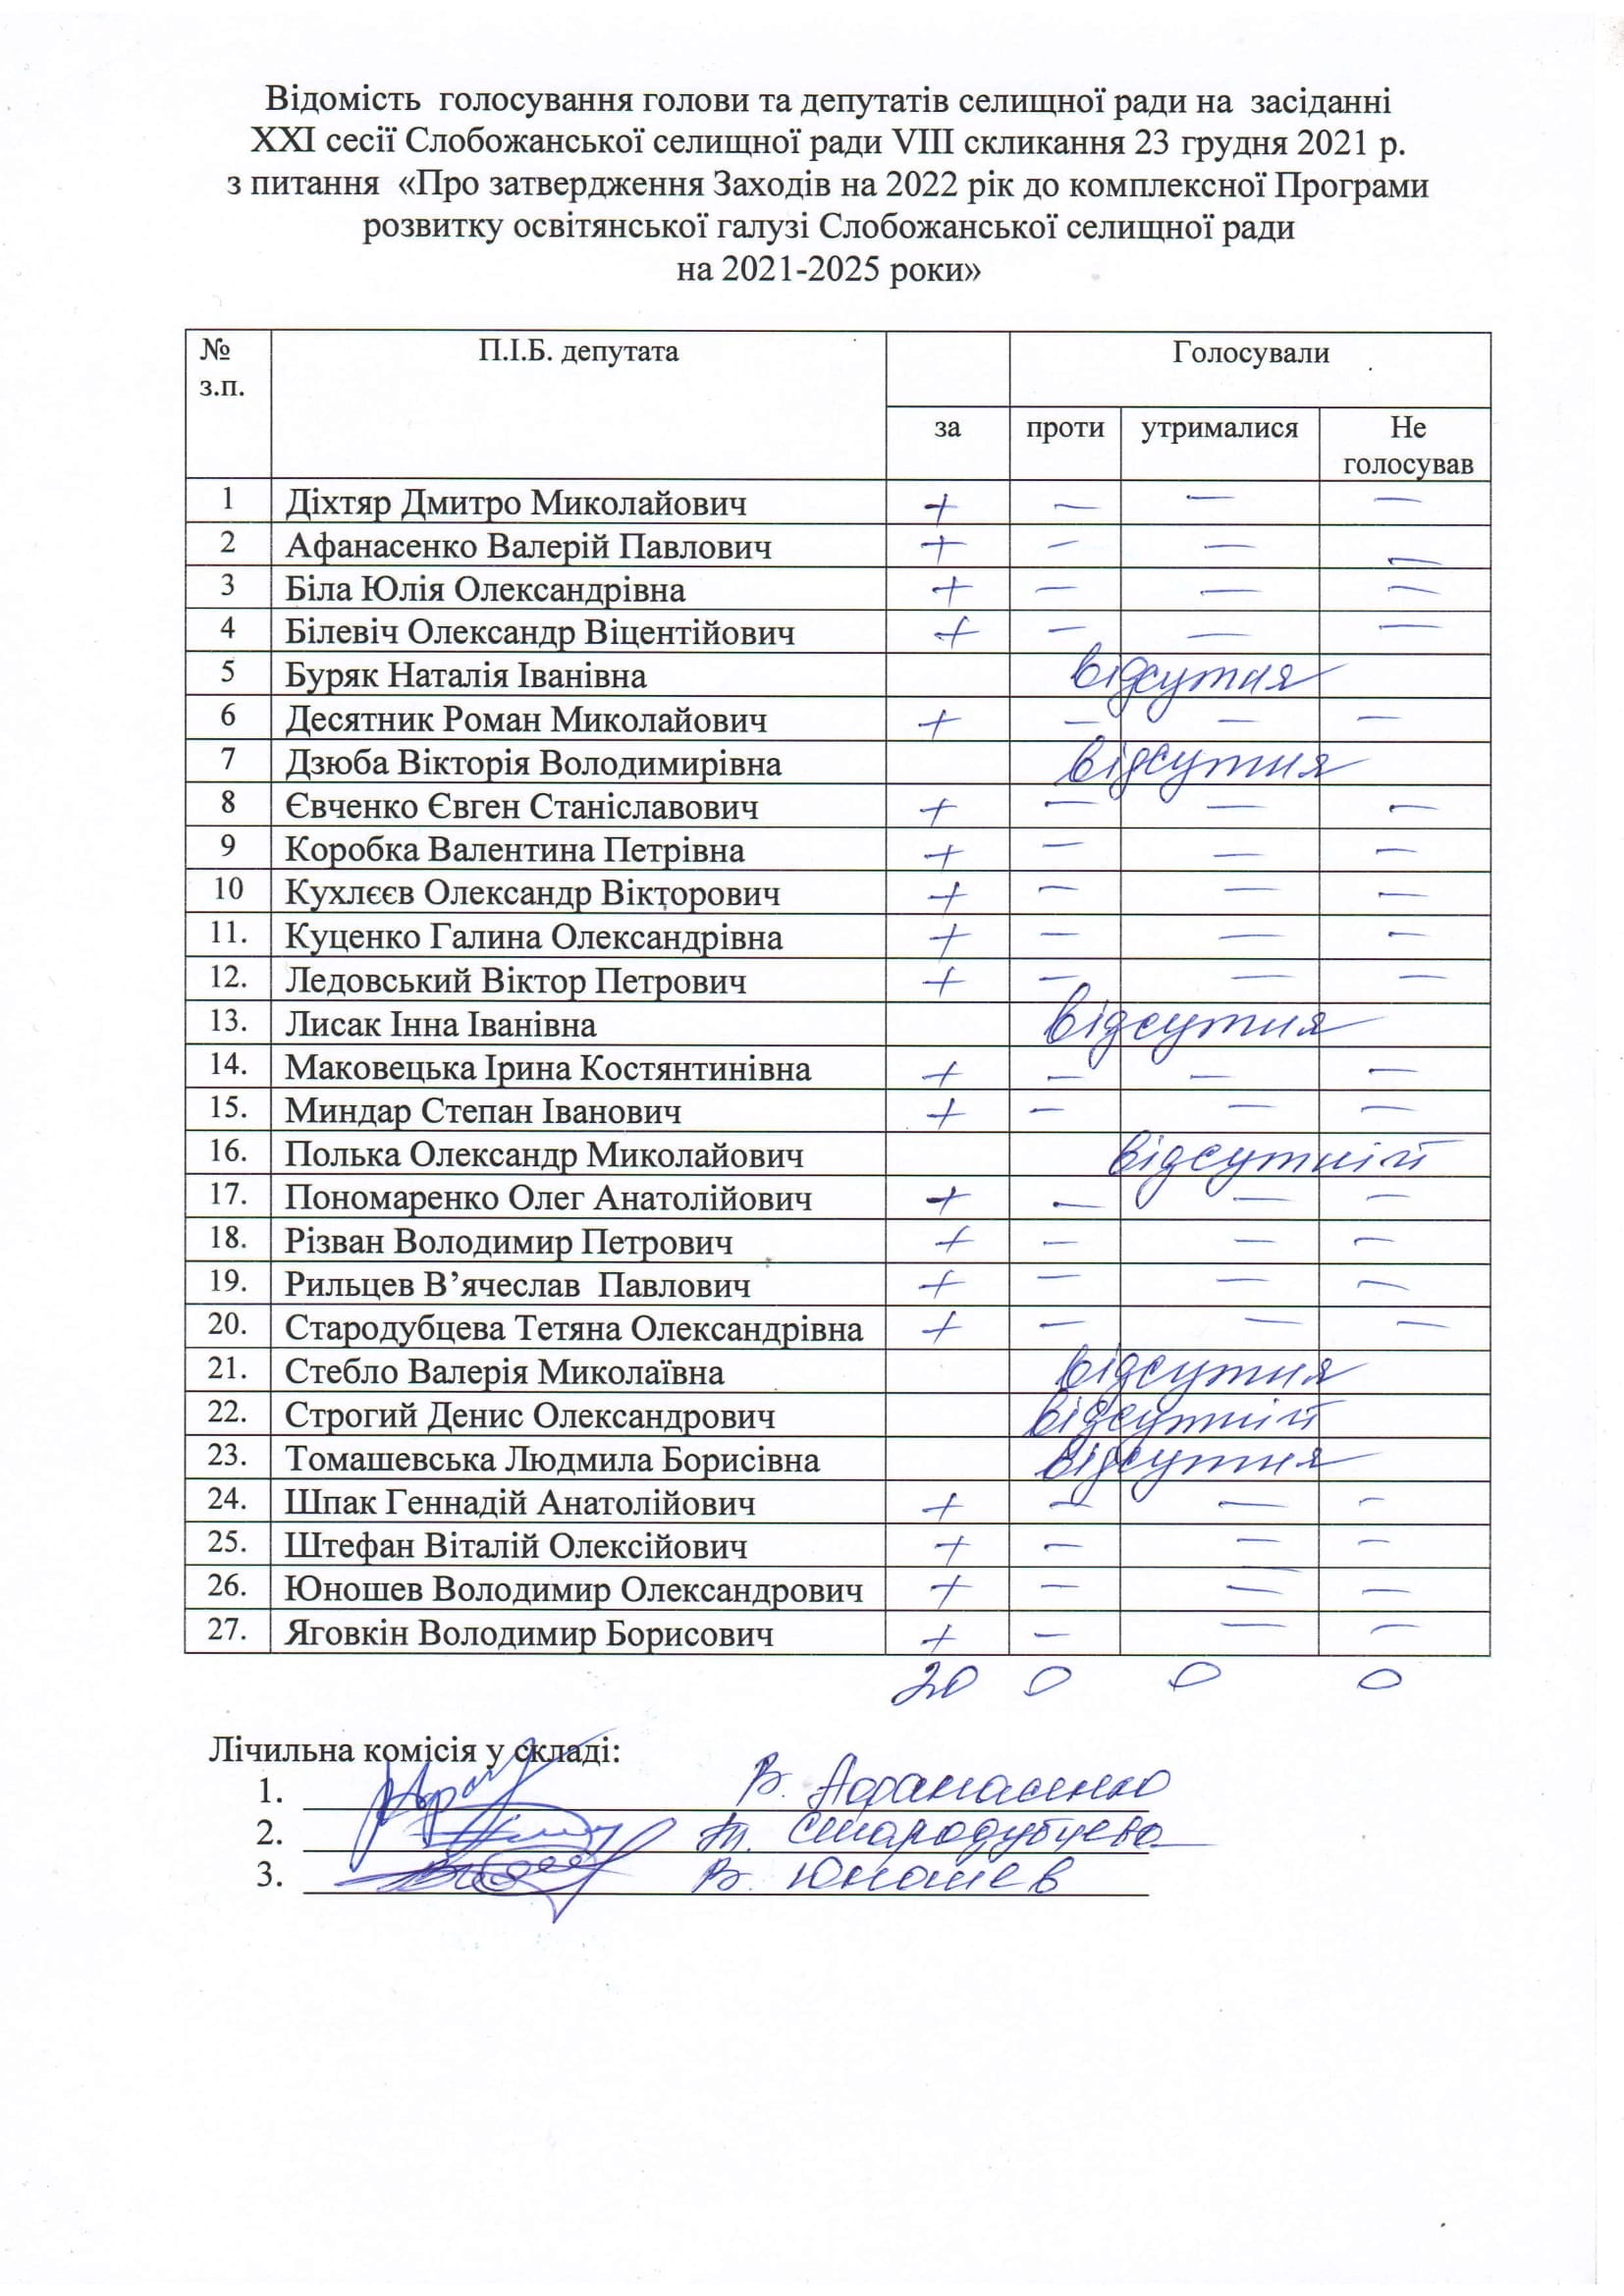 Відомість голосування голови та депутатів селищної ради на засіданні
XXI сесії Слобожанської селищної ради VIII скликання 23 грудня 2021 р.
з питання «Про затвердження Заходів на 2022 рік до комплексної Програми
розвитку освітянської галузі Слобожанської селищної ради
на 2021-2025 роки»
№ з.п. П.І.Б. депутата Голосували
за проти утрималися Не голосував
1 Діхтяр Дмитро Миколайович + — — —
2 Афанасенко Валерій Павлович + — — —
3 Біла Юлія Олександрівна + — — —
4 Білевіч Олександр Віцентійович + — — —
5 Буряк Наталія Іванівна відсутня
6 Десятник Роман Миколайович + — — —
7 Дзюба Вікторія Володимирівна відсутня
8 Євченко Євген Станіславович + — — —
9 Коробка Валентина Петрівна + — — —
10 Кухлєєв Олександр Вікторович + — — —
11. Куценко Галина Олександрівна + — — —
12. Ледовський Віктор Петрович + — — —
13. Лисак Інна Іванівна відсутня
14. Маковецька Ірина Костянтинівна + — — —
15. Миндар Степан Іванович + — — —
16. Полька Олександр Миколайович відсутній
17. Пономаренко Олег Анатолійович + — — —
18. Різван Володимир Петрович + — — —
19. Рильцев В’ячеслав Павлович + — — —
20. Стародубцева Тетяна Олександрівна + — — —
21. Стебло Валерія Миколаївна відсутня
22. Строгий Денис Олександрович відсутній
23. Томашевська Людмила Борисівна відсутня
24. Шпак Геннадій Анатолійович + — — —
25. Штефан Віталій Олексійович + — — —
26. Юношев Володимир Олександрович + — — —
27. Яговкін Володимир Борисович + — — —
20 0 0 0
Лічильна комісія у складі:
1. В. Афанасенко
2. Т. Стародубцева
3. В. Юношев